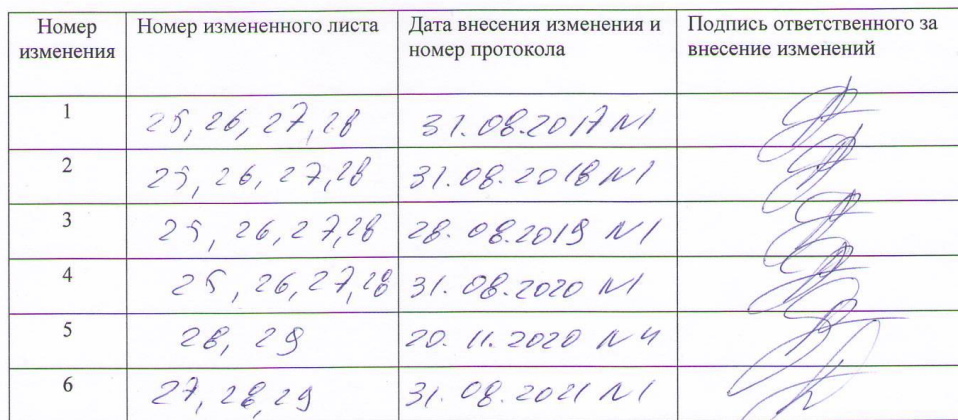 Номер изменения Номер измененного листа Дата внесения изменения и номер протокола Подпись ответственного за внесение изменений
1 25, 26, 27, 28 31.08.2017 N1
2 25, 26, 27, 28 31.08.2018 N1
3 25, 26, 27, 28 28.08.2019 N1
4 25, 26, 27, 28 31.08.2020 N1
5 28, 29 20.11.2020 N4
6 27, 28, 29 31.08.2021 N1